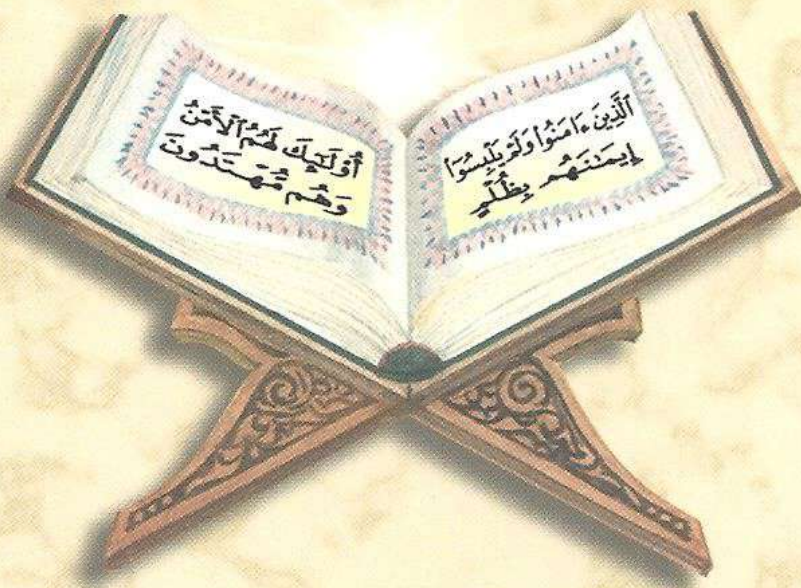 ٱلَّذِينَ ءَامَنُوا۟ وَلَمْ يَلْبِسُوٓا۟
إِيمَٰنَهُم بِظُلْمٍ
أُو۟لَٰٓئِكَ لَهُمُ ٱلْأَمْنُ
وَهُم مُّهْتَدُونَ